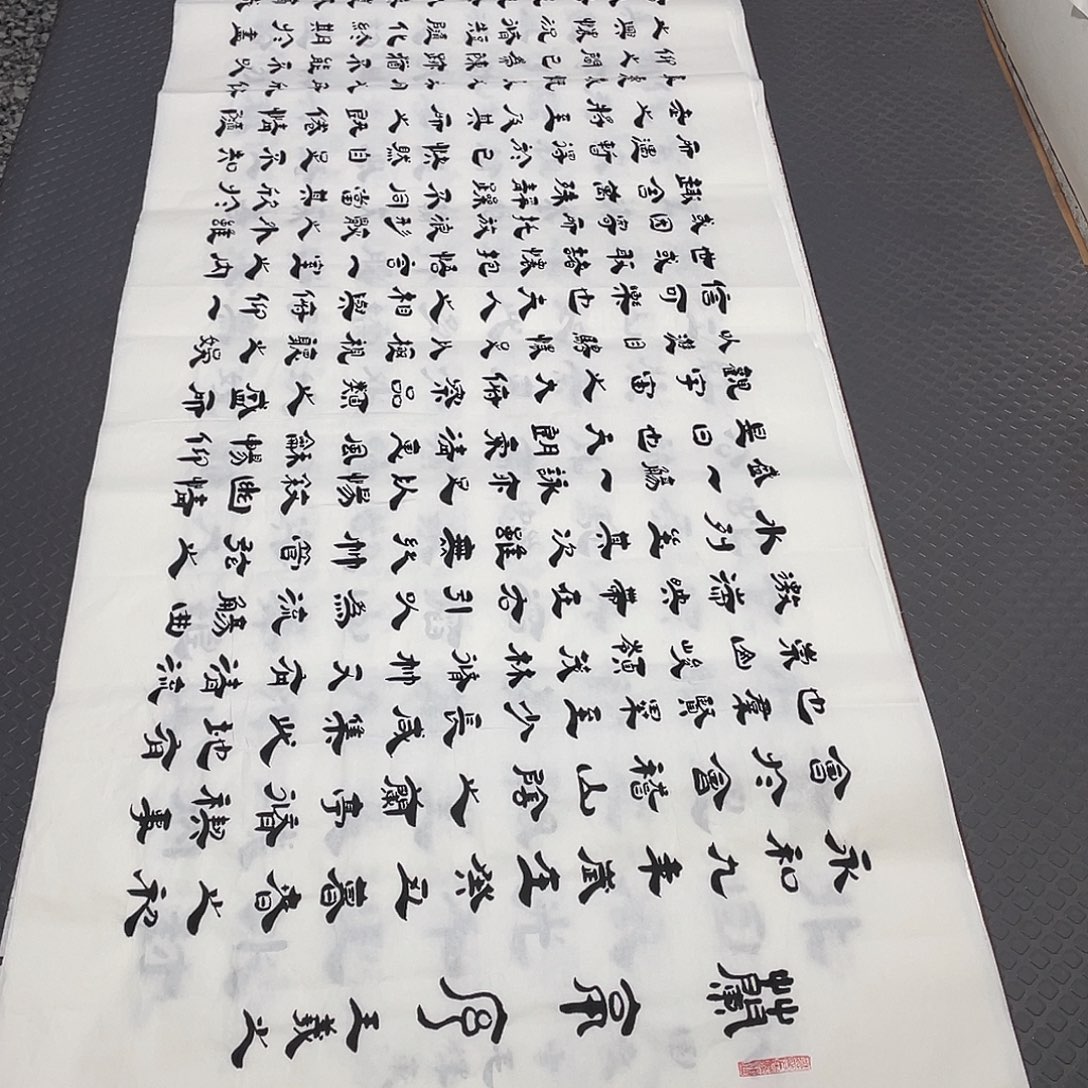 蘭亭序 王羲之
永和九年歲在癸丑暮春之初
會於會稽山陰之蘭亭脩禊事
也羣賢畢至少長咸集此地有
崇山峻領茂林脩竹又有清流
激湍映帶左右引以為流觴曲
水列坐其次雖無絲竹管弦之
盛一觴一詠亦足以暢敘幽情
是日也天朗氣清惠風和暢仰
觀宇宙之大俯察品類之盛所
以遊目騁懷足以極視聽之娛
信可樂也夫人之相與俯仰一
世或取諸懷抱悟言一室之內
或因寄所託放浪形骸之外雖
趣舍萬殊靜躁不同當其欣於
所遇暫得於己快然自足不知
老之將至及其所之既倦情隨
仰之間已為陳跡猶不能不以
之興懷況脩短隨化終期於盡